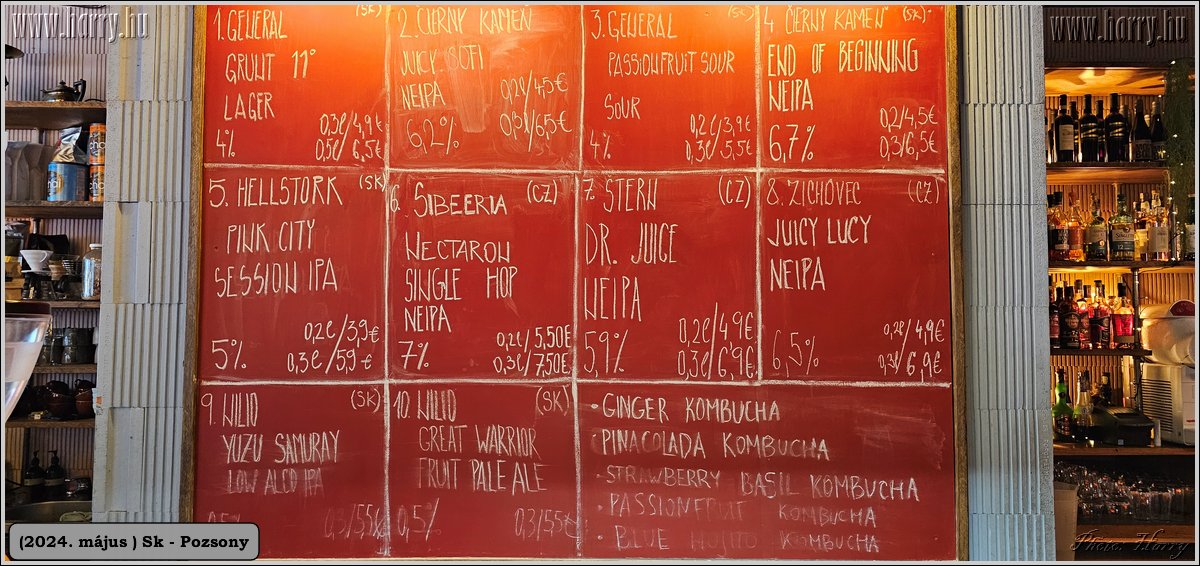 www.horry.hu
www.horry.hu
1. GENERAL (SK)
GRUNT 11°
LAGER
4%
0,3l/4,9€
0,5l/6,5€
2. ČIERNY KAMEŇ
JUICY SOFI
NEIPA
6,2%
0,2l/4,5€
0,3l/6,5€
3. GENERAL (SK)
PASSIONFRUIT SOUR
SOUR
4%
0,2l/3,9€
0,3l/5,5€
4 ČIERNY KAMEŇ (SK)
END OF BEGINNING
NEIPA
6,7%
0,2/4,5€
0,3/6,5€
5. HELLSTORK (SK)
PINK CITY
SESSION IPA
5%
0,2l/3,9€
0,3l/5,9€
6. SIBEERIA (CZ)
NECTARON
SINGLE HOP
NEIPA
7%
0,2l/5,50€
0,3l/7,50€
7. STERN (CZ)
DR. JUICE
NEIPA
5,9%
0,2l/4,9€
0,3l/6,9€
8. ZICHOVEC (CZ)
JUICY LUCY
NEIPA
6,5%
0,2l/4,9€
0,3l/6,9€
9. WILD (SK)
YUZU SAMURAY
LOW ALCO IPA
0,5%
0,3/5,5€
10. WILD (SK)
GREAT WARRIOR
FRUIT PALE ALE
0,5%
0,3/5,5€
• GINGER KOMBUCHA
• PINACOLADA KOMBUCHA
• STRAWBERRY BASIL KOMBUCHA
• PASSIONFRUIT KOMBUCHA
• BLUE MOJITO KOMBUCHA
(2024. május ) Sk - Pozsony
Photo: Horry